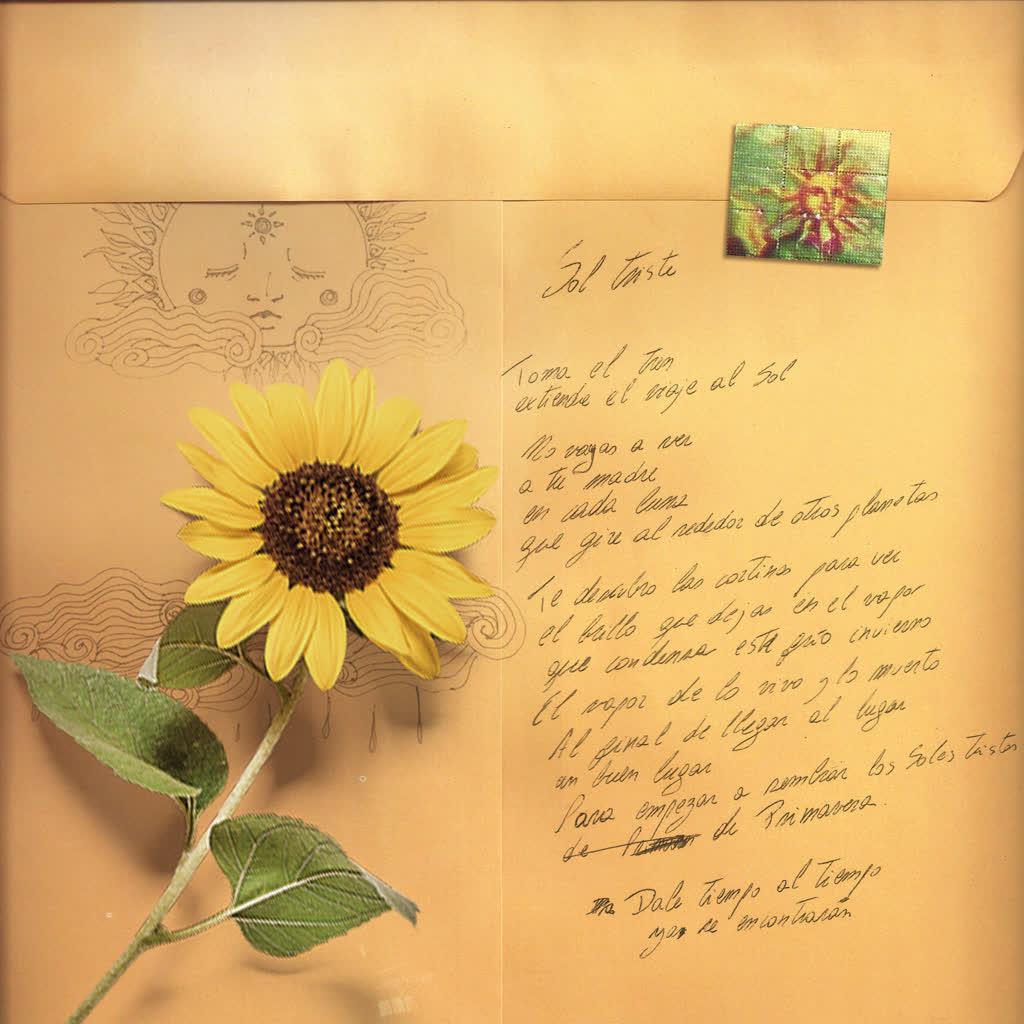 Sol triste
Toma el tren
extiende el viaje al Sol
No vayas a ver
a tu madre
en cada luna
que gire al rededor de otros planetas
Te descubro las cortinas para ver
el brillo que dejas en el vapor
que condensa este frío invierno
El vapor de lo vivo y lo muerto
Al final de llegar al lugar
un buen lugar
Para empezar a sembrar los Soles tristes
de de Primavera.
Dale tiempo al tiempo
ya se encontrarán